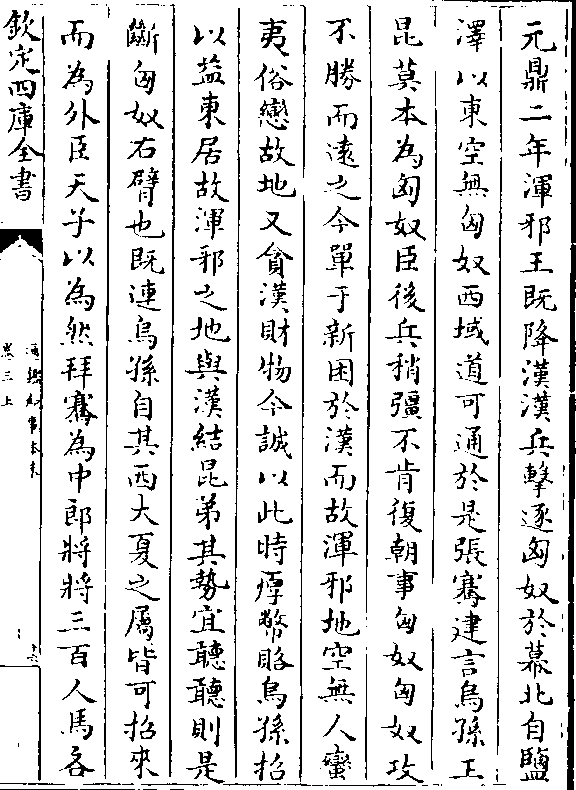 元鼎二年渾邪王既降漢漢兵擊逐匈奴於幕北自鹽
澤以東空無匈奴西域道可通於是張騫建言烏孫王
昆莫本為匈奴臣後兵稍彊不肯復朝事匈奴匈奴攻
不勝而遠之今單于新困於漢而故渾邪地空無人蠻
夷俗戀故地又貪漢財物今誠以此時厚幣賂烏孫招
以益東居故渾邪之地與漢結昆弟其勢宜聽聽則是
斷匈奴右臂也既連烏孫自其西大夏之屬皆可招來
而為外臣天子以為然拜騫為中郎將將三百人馬各
欽定四庫全書
通鑑紀事本末
卷三上